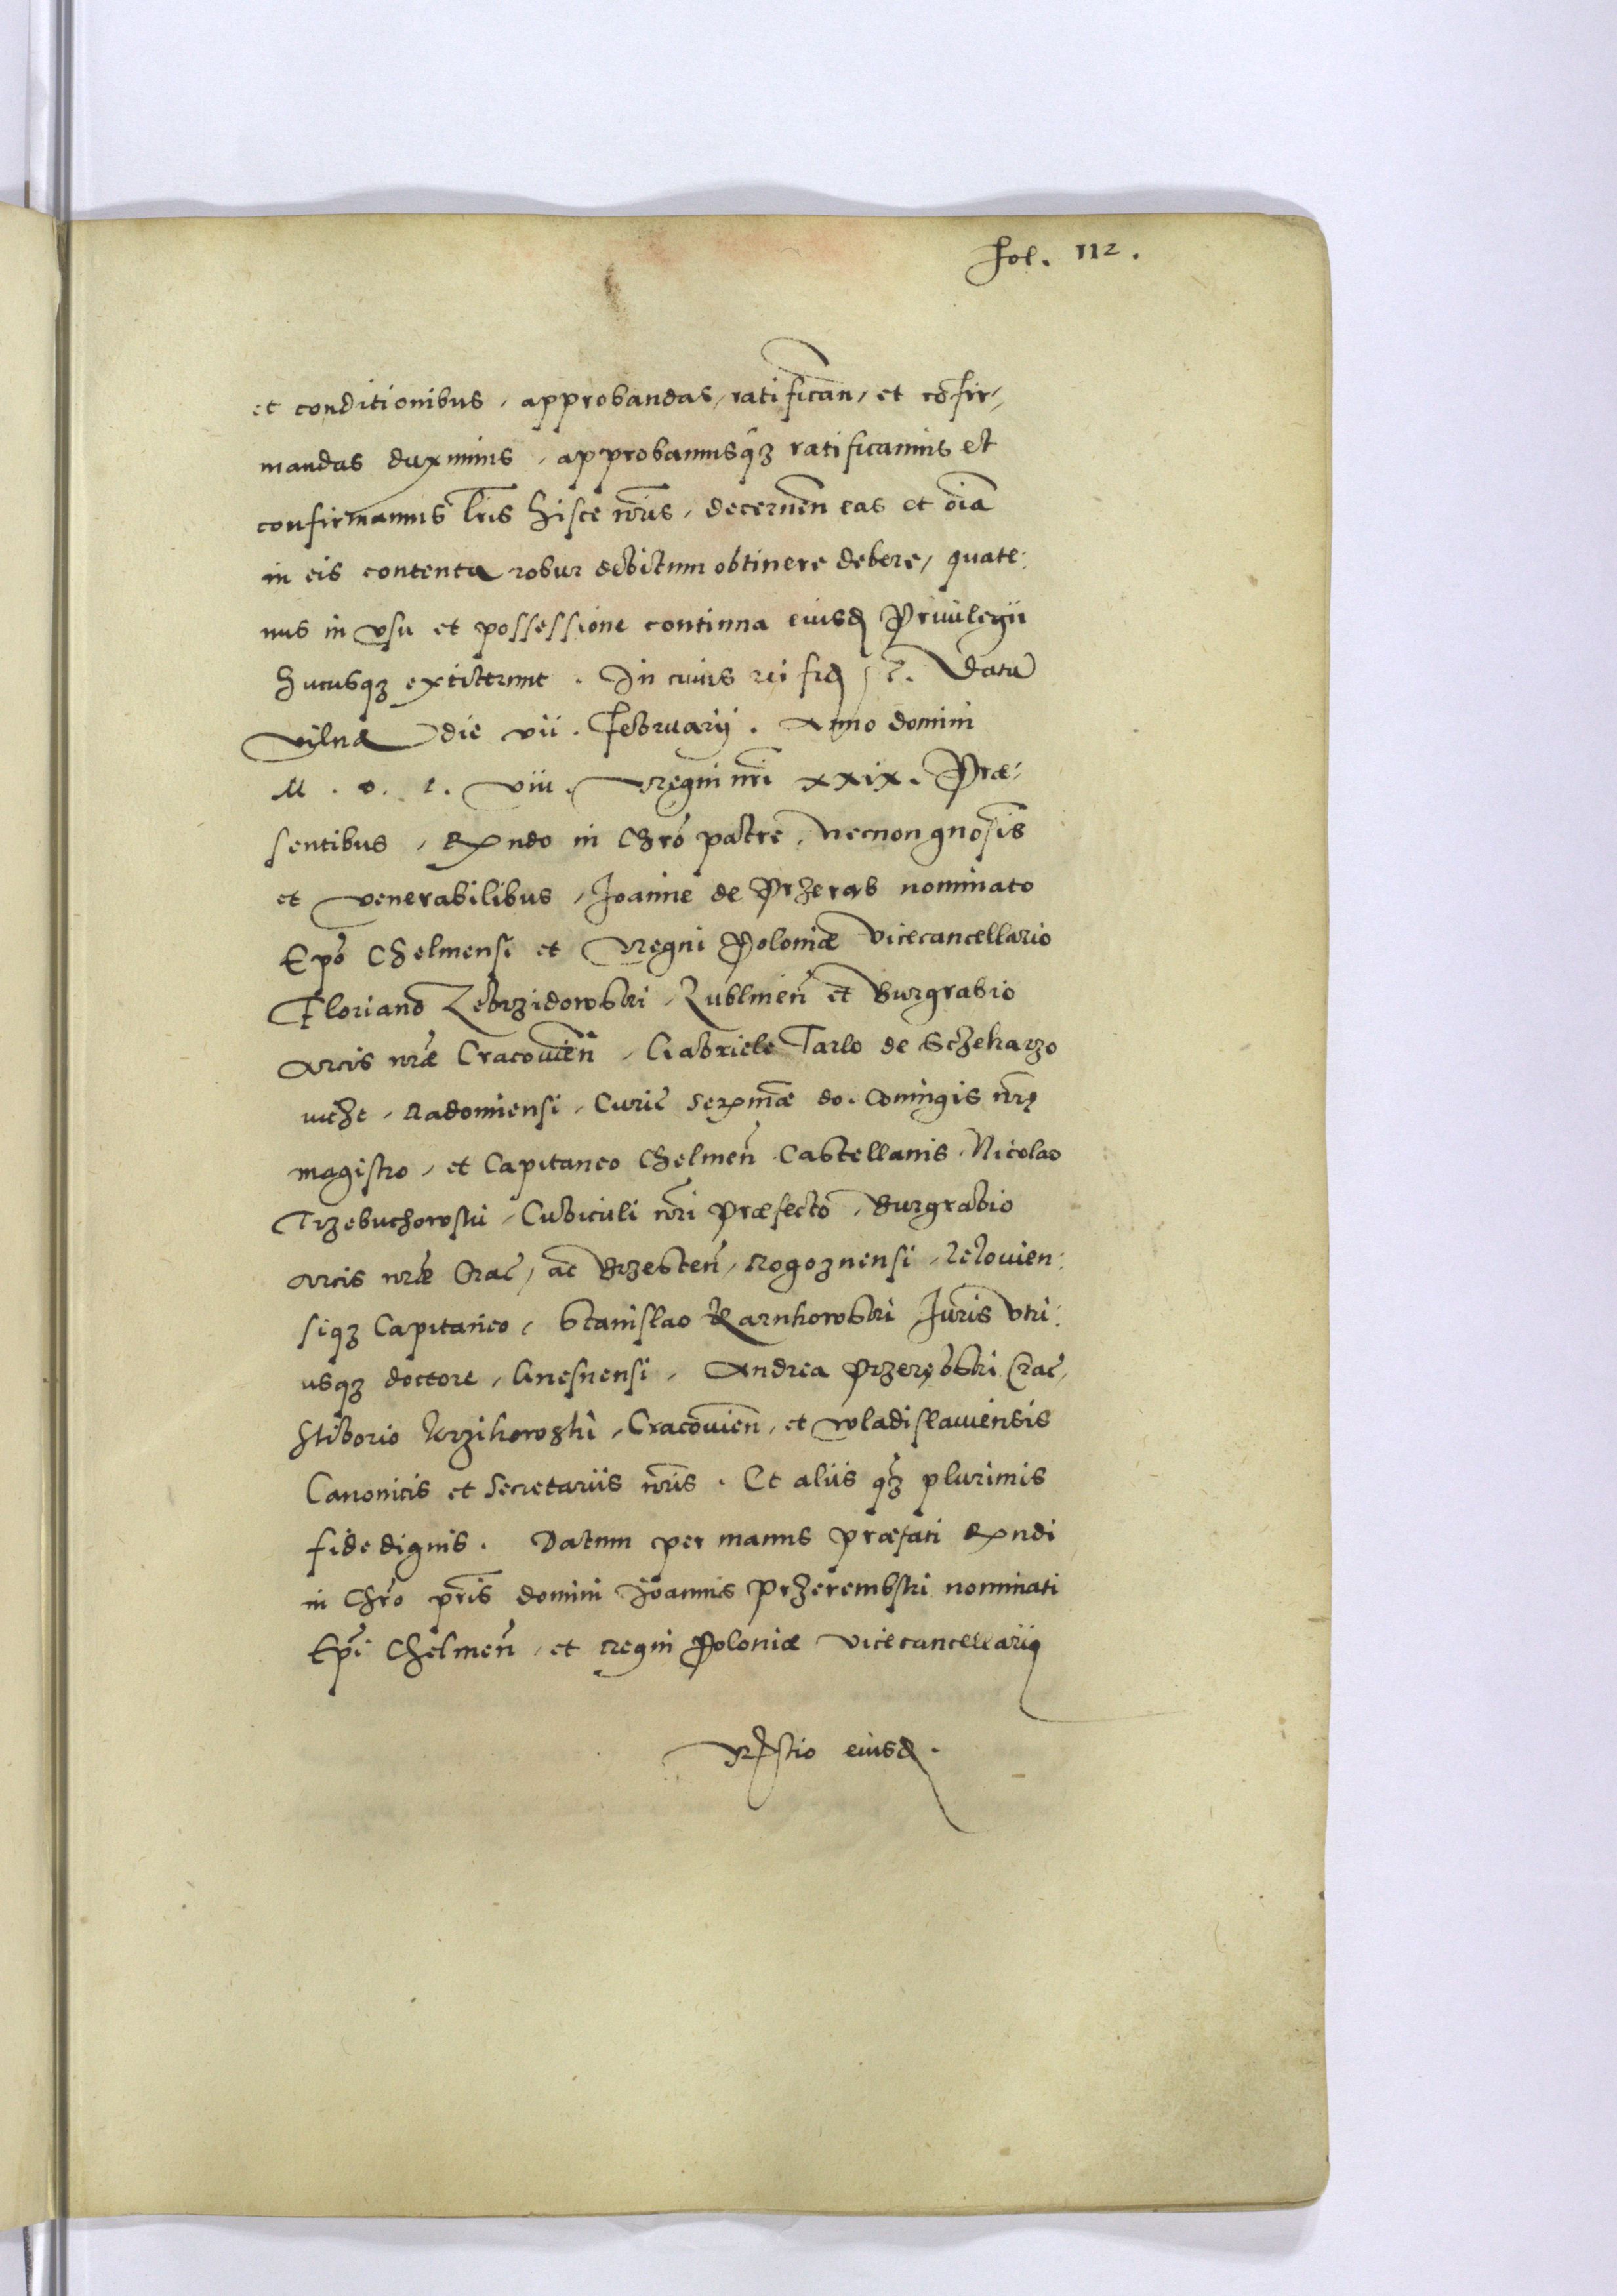 fol. 112.
et conditionibus, approbandas, ratifican̄, et cōfir-
mandas duximus, approbamusq́ꝫ ratificamus et
confirmamus l̄ris hisce nr̄is, decernen̄ eas et oīa
in eis contenta robur debitum obtinere debere, quate:
nus in vsu et possessione continua eiusd Priuilegii
hucusqꝫ extiterunt. In cuius rei fid, c. Datū
Vilnæ die vii. Februarij. Anno domini
M. D. L. viii. Regni nr̄i xxix. Præ-
sentibus, Rndo in Chrō patre, necnon gnosīs
et venerabilibus, Joanne de Przerąb nominato
Epō Chelmensi et Regni Poloniæ Vicecancellario
Floriano Zebrzidowski, Lublinen̄ et Burgrabio
Arcis nr̄æ Cracouien̄, Gabriele Tarlo de Sczekarzo
wicze, Radomiensi, Curie Serenm̄æ do. Coniugis nr̄ę
magistro, et Capitaneo Chelmen̄ Castellanis. Nicolao
Trzebuchowski, Cubiculi nr̄i Præfecto, Burgrabio
Arcis nr̄æ Crac̄, ac Brzesten̄, Rogoznensi, Lelouien:
siqꝫ Capitaneo, Stanislao Karnkowski Juris vtri:
usqꝫ doctore, Gnesnensi, Andrea Przerębski Crac̄,
Stiborio Krzikowski, Cracouien̄, et Wladislauiensis
Canonicis et Secretariis nr̄is. Et aliis qꝫ̄ plurimis
fidedignis. Datum per manus præfati Rndi
in Chrō pr̄is domini Joannis Przerembski nominati
Epī Chelmen̄, et Regni Poloniæ Vicecancellarij
eiusd.